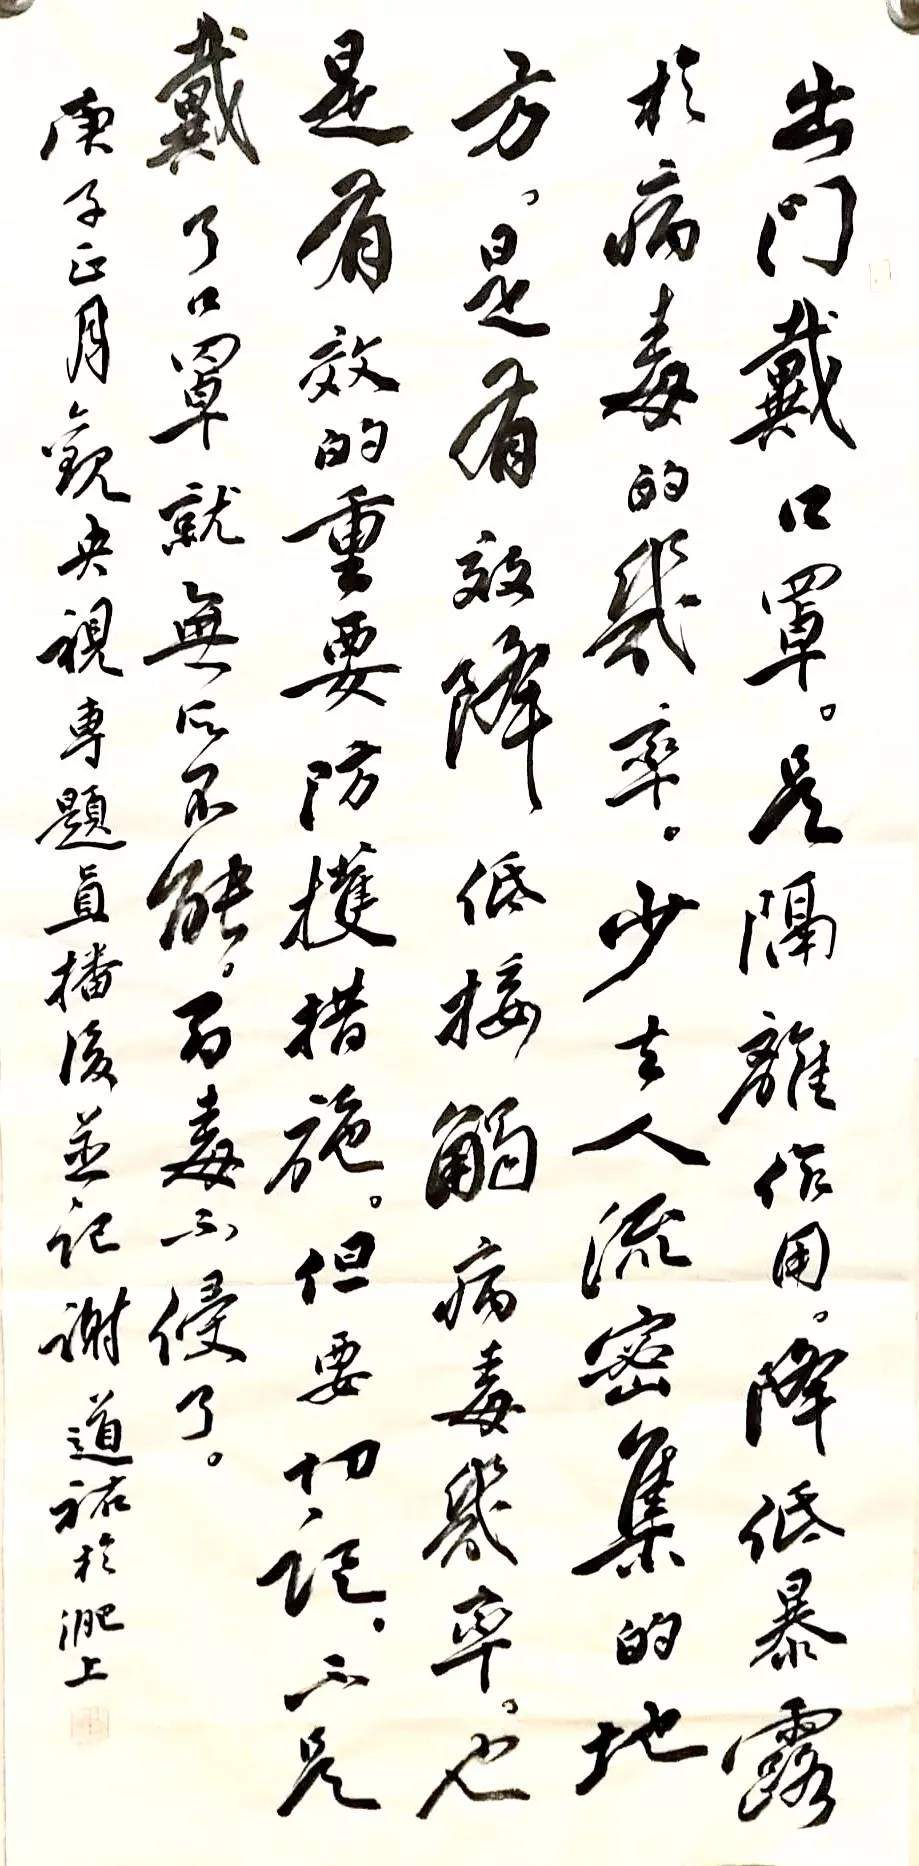 出門戴口罩。是隔離作用。降低暴露
於病毒的幾率。少去人流密集的地
方。是有效降低接觸病毒幾率。也
是有效的重要防擭措施。但要切記。不是
戴了口罩就無所不能。病毒不侵了。
庚子正月觀央視專題直播後並記謝道祐於淝上